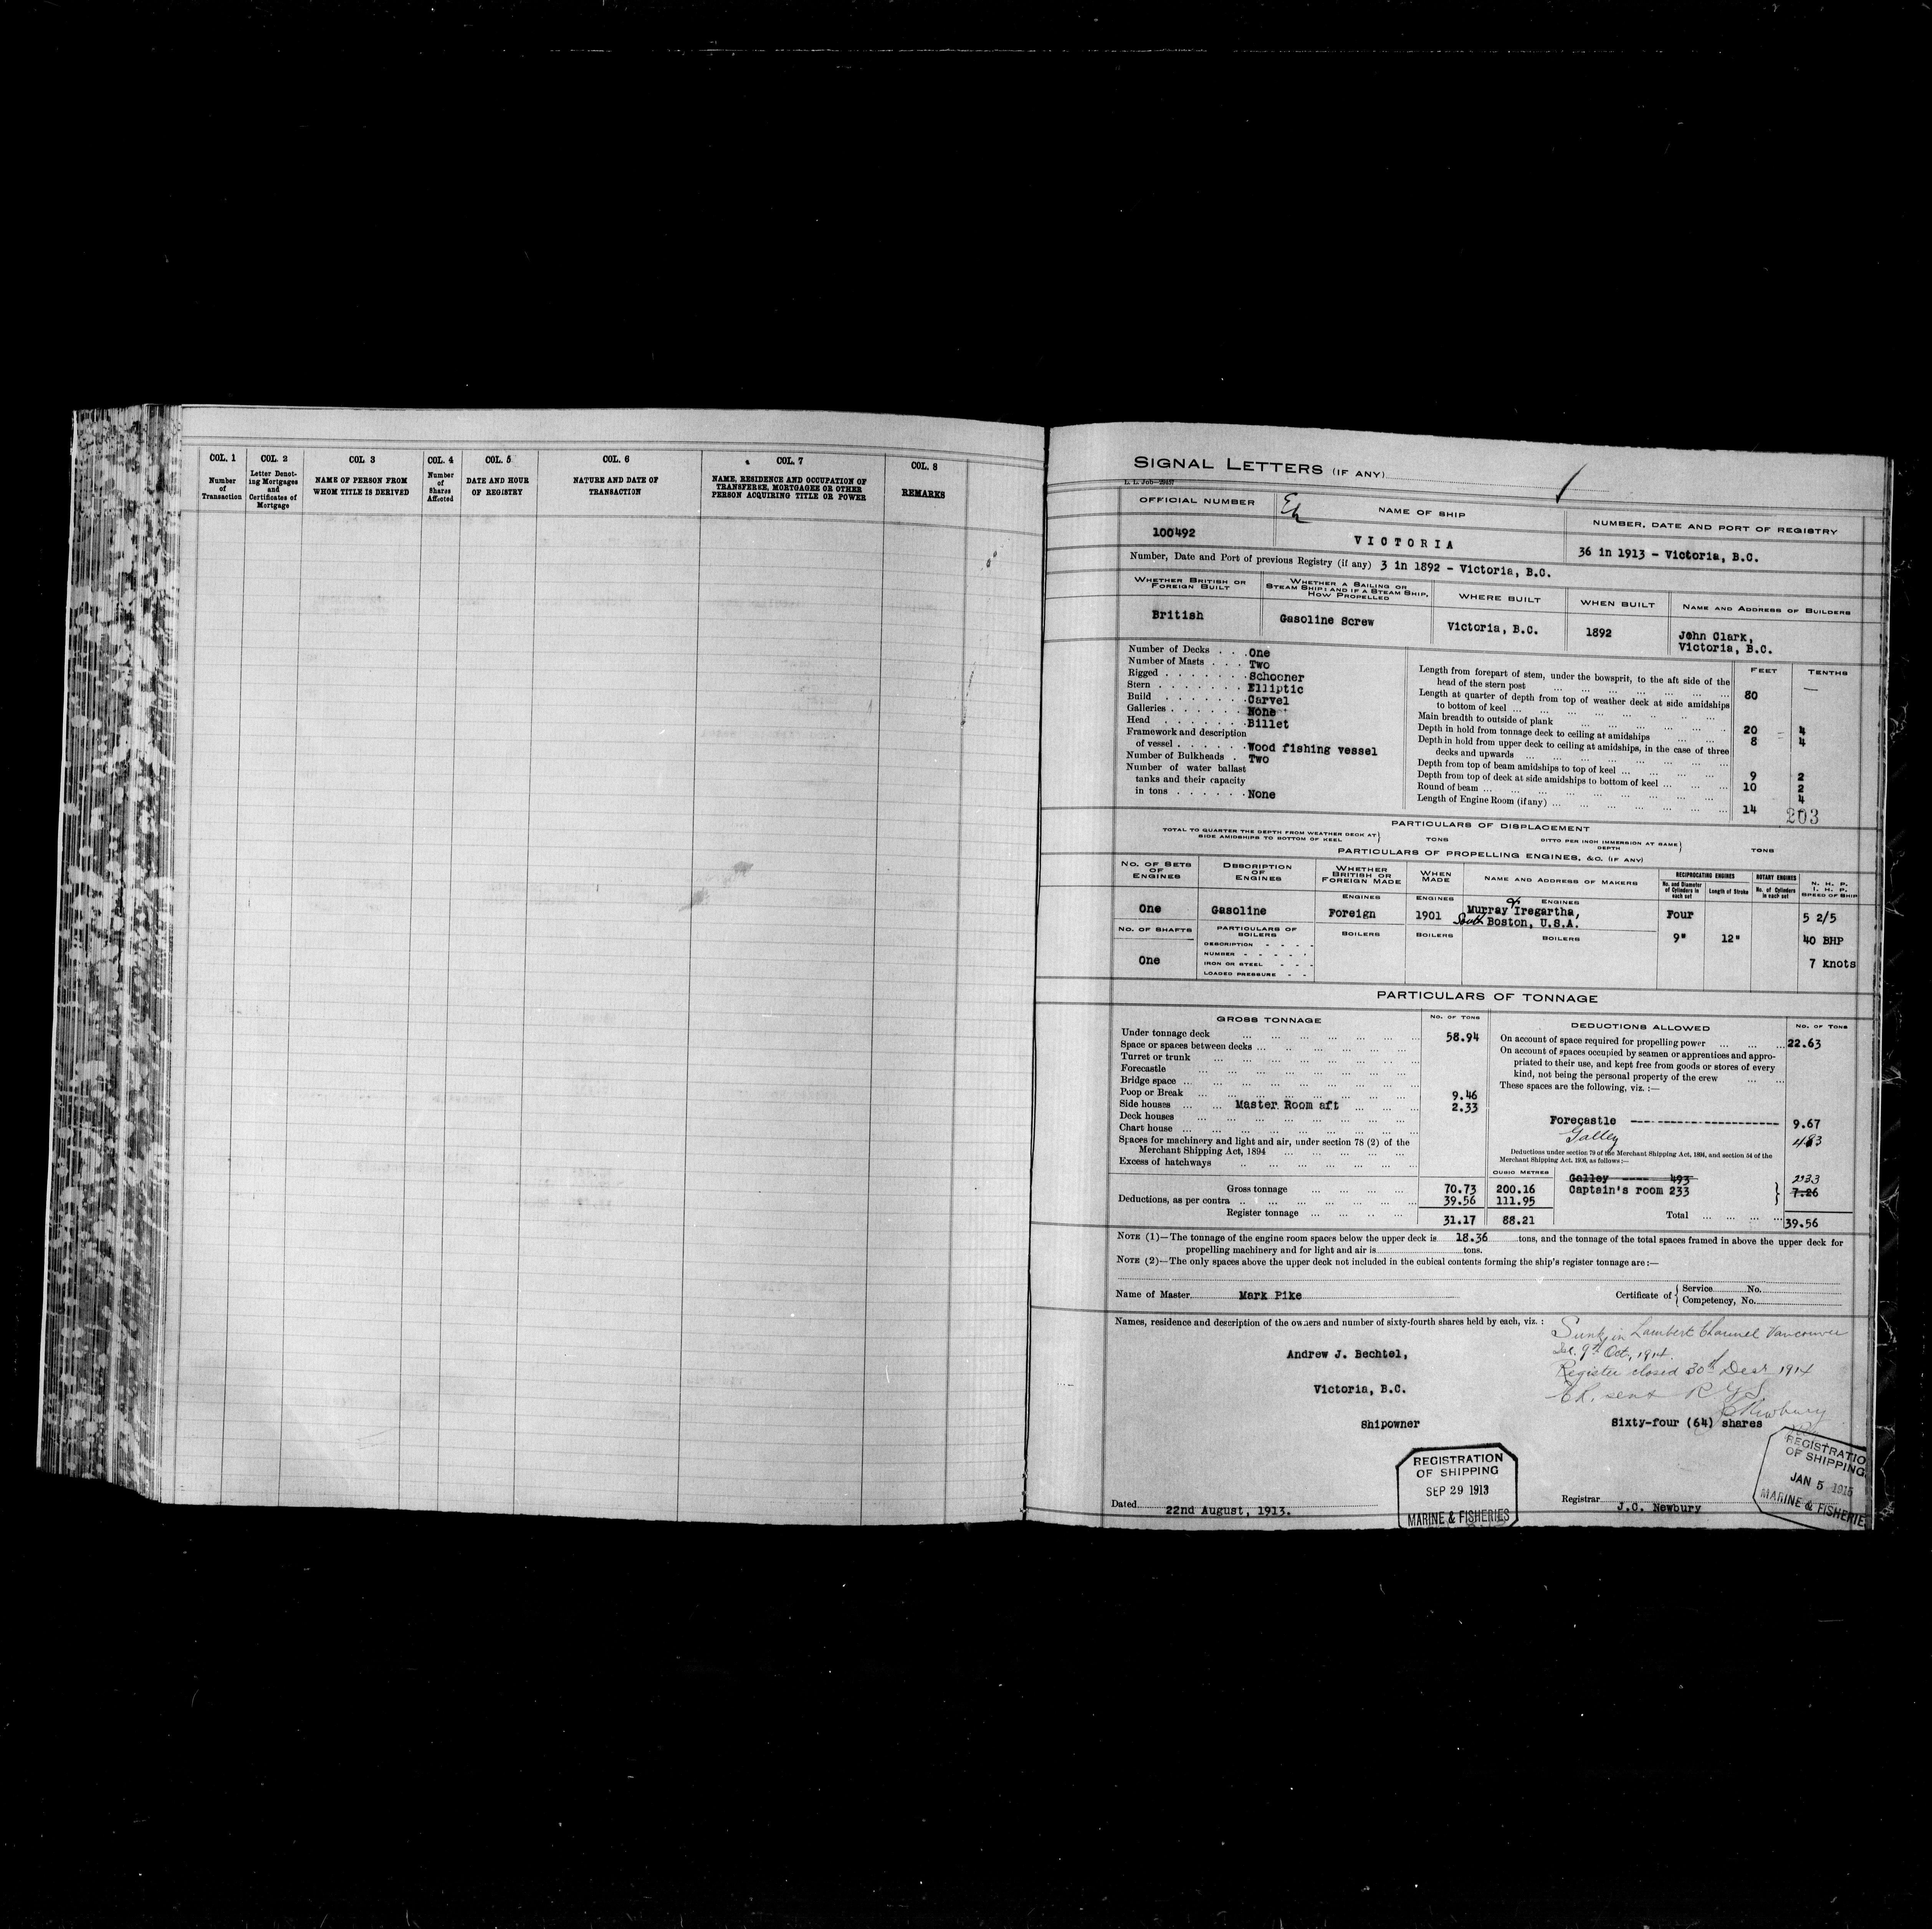 COL. 1
Number of Transaction
COL. 2
Letter Denoting Mortgages and Certificates of Mortgage
COL. 3
NAME OF PERSON FROM WHOM TITLE IS DERIVED
COL. 4
Number of Shares Affected
COL. 5
DATE AND HOUR OF REGISTRY
COL. 6
NATURE AND DATE OF TRANSACTION
COL. 7
NAME, RESIDENCE AND OCCUPATION OF TRANSFEREE, MORTGAGEE OR OTHER PERSON ACQUIRING TITLE OR POWER
COL. 8
REMARKS
SIGNAL LETTERS (IF ANY)
L. L. Job—29457
OFFICIAL NUMBER
NAME OF SHIP
NUMBER, DATE AND PORT OF REGISTRY
100492
VICTORIA
36 in 1913 - Victoria, B.C.
Number, Date and Port of previous Registry (if any) 3 in 1892 - Victoria, B.C.
WHETHER BRITISH OR FOREIGN BUILT
WHETHER A SAILING OR STEAM SHIP; AND IF A STEAM SHIP, HOW PROPELLED
WHERE BUILT
WHEN BUILT
NAME AND ADDRESS OF BUILDERS
British
Gasoline Screw
Victoria, B.C.
1892
John Clark,
Victoria, B.C.
Number of Decks One
Number of Masts Two
Rigged Schooner
Stern Elliptic
Build Carvel
Galleries None
Head Billet
Framework and description
of vessel Wood fishing vessel
Number of Bulkheads Two
Number of water ballast
tanks and their capacity
in tons None
FEET TENTHS
Length from forepart of stem, under the bowsprit, to the aft side of the
head of the stern post 80 —
Length at quarter of depth from top of weather deck at side amidships
to bottom of keel
Main breadth to outside of plank 20 4
Depth in hold from tonnage deck to ceiling at amidships 8 4
Depth in hold from upper deck to ceiling at amidships, in the case of three
decks and upwards
Depth from top of beam amidships to top of keel 9 2
Depth from top of deck at side amidships to bottom of keel 10 2
Round of beam 4
Length of Engine Room (if any) 14
203
PARTICULARS OF DISPLACEMENT
TOTAL TO QUARTER THE DEPTH FROM WEATHER DECK AT SIDE AMIDSHIPS TO BOTTOM OF KEEL } TONS
DITTO PER INCH IMMERSION AT SAME DEPTH } TONS
PARTICULARS OF PROPELLING ENGINES, &C. (IF ANY)
NO. OF SETS OF ENGINES
DESCRIPTION OF ENGINES
WHETHER BRITISH OR FOREIGN MADE
WHEN MADE
NAME AND ADDRESS OF MAKERS
RECIPROCATING ENGINES
No. and Diameter of Cylinders in each set
Length of Stroke
ROTARY ENGINES
No. of Cylinders in each set
N. H. P.
I. H. P.
SPEED OF SHIP
ENGINES ENGINES ENGINES
One
Gasoline
Foreign
1901
Murray & Iregartha,
South Boston, U.S.A.
Four
5 2/5
NO. OF SHAFTS
PARTICULARS OF BOILERS
BOILERS BOILERS BOILERS
9"
12"
40 BHP
DESCRIPTION
NUMBER
IRON OR STEEL
LOADED PRESSURE
One
7 knots
PARTICULARS OF TONNAGE
GROSS TONNAGE
NO. OF TONS
Under tonnage deck 58.94
Space or spaces between decks
Turret or trunk
Forecastle
Bridge space
Poop or Break 9.46
Side houses Master Room aft 2.33
Deck houses
Chart house
Spaces for machinery and light and air, under section 78 (2) of the
Merchant Shipping Act, 1894
Excess of hatchways
CUBIC METRES
Gross tonnage 70.73 200.16
Deductions, as per contra 39.56 111.95
Register tonnage 31.17 88.21
DEDUCTIONS ALLOWED
NO. OF TONS
On account of space required for propelling power 22.63
On account of spaces occupied by seamen or apprentices and appro-
priated to their use, and kept free from goods or stores of every
kind, not being the personal property of the crew
These spaces are the following, viz. :—
Forecastle 9.67
Galley
Deductions under section 79 of the Merchant Shipping Act, 1894, and section 54 of the
Merchant Shipping Act, 1906, as follows:—
Galley 493
2.33
Captain's room 233
7.26
Total 39.56
NOTE (1)—The tonnage of the engine room spaces below the upper deck is 18.36 tons, and the tonnage of the total spaces framed in above the upper deck for
propelling machinery and for light and air is tons.
NOTE (2)—The only spaces above the upper deck not included in the cubical contents forming the ship's register tonnage are :—
Name of Master Mark Pike
Certificate of { Service No.
Competency, No.
Names, residence and description of the owners and number of sixty-fourth shares held by each, viz. :
Sunk in Lambert Channel Vancouver
Isl. 9th Oct, 1914.
Register closed 30th Decr 1914
Andrew J. Bechtel,
Victoria, B.C.
Shipowner
Sixty-four (64) shares
REGISTRATION
OF SHIPPING
SEP 29 1913
MARINE & FISHERIES
REGISTRATIO
OF SHIPPING
JAN 5 1915
MARINE & FISHERIE
Dated 22nd August, 1913.
Registrar J.C. Newbury